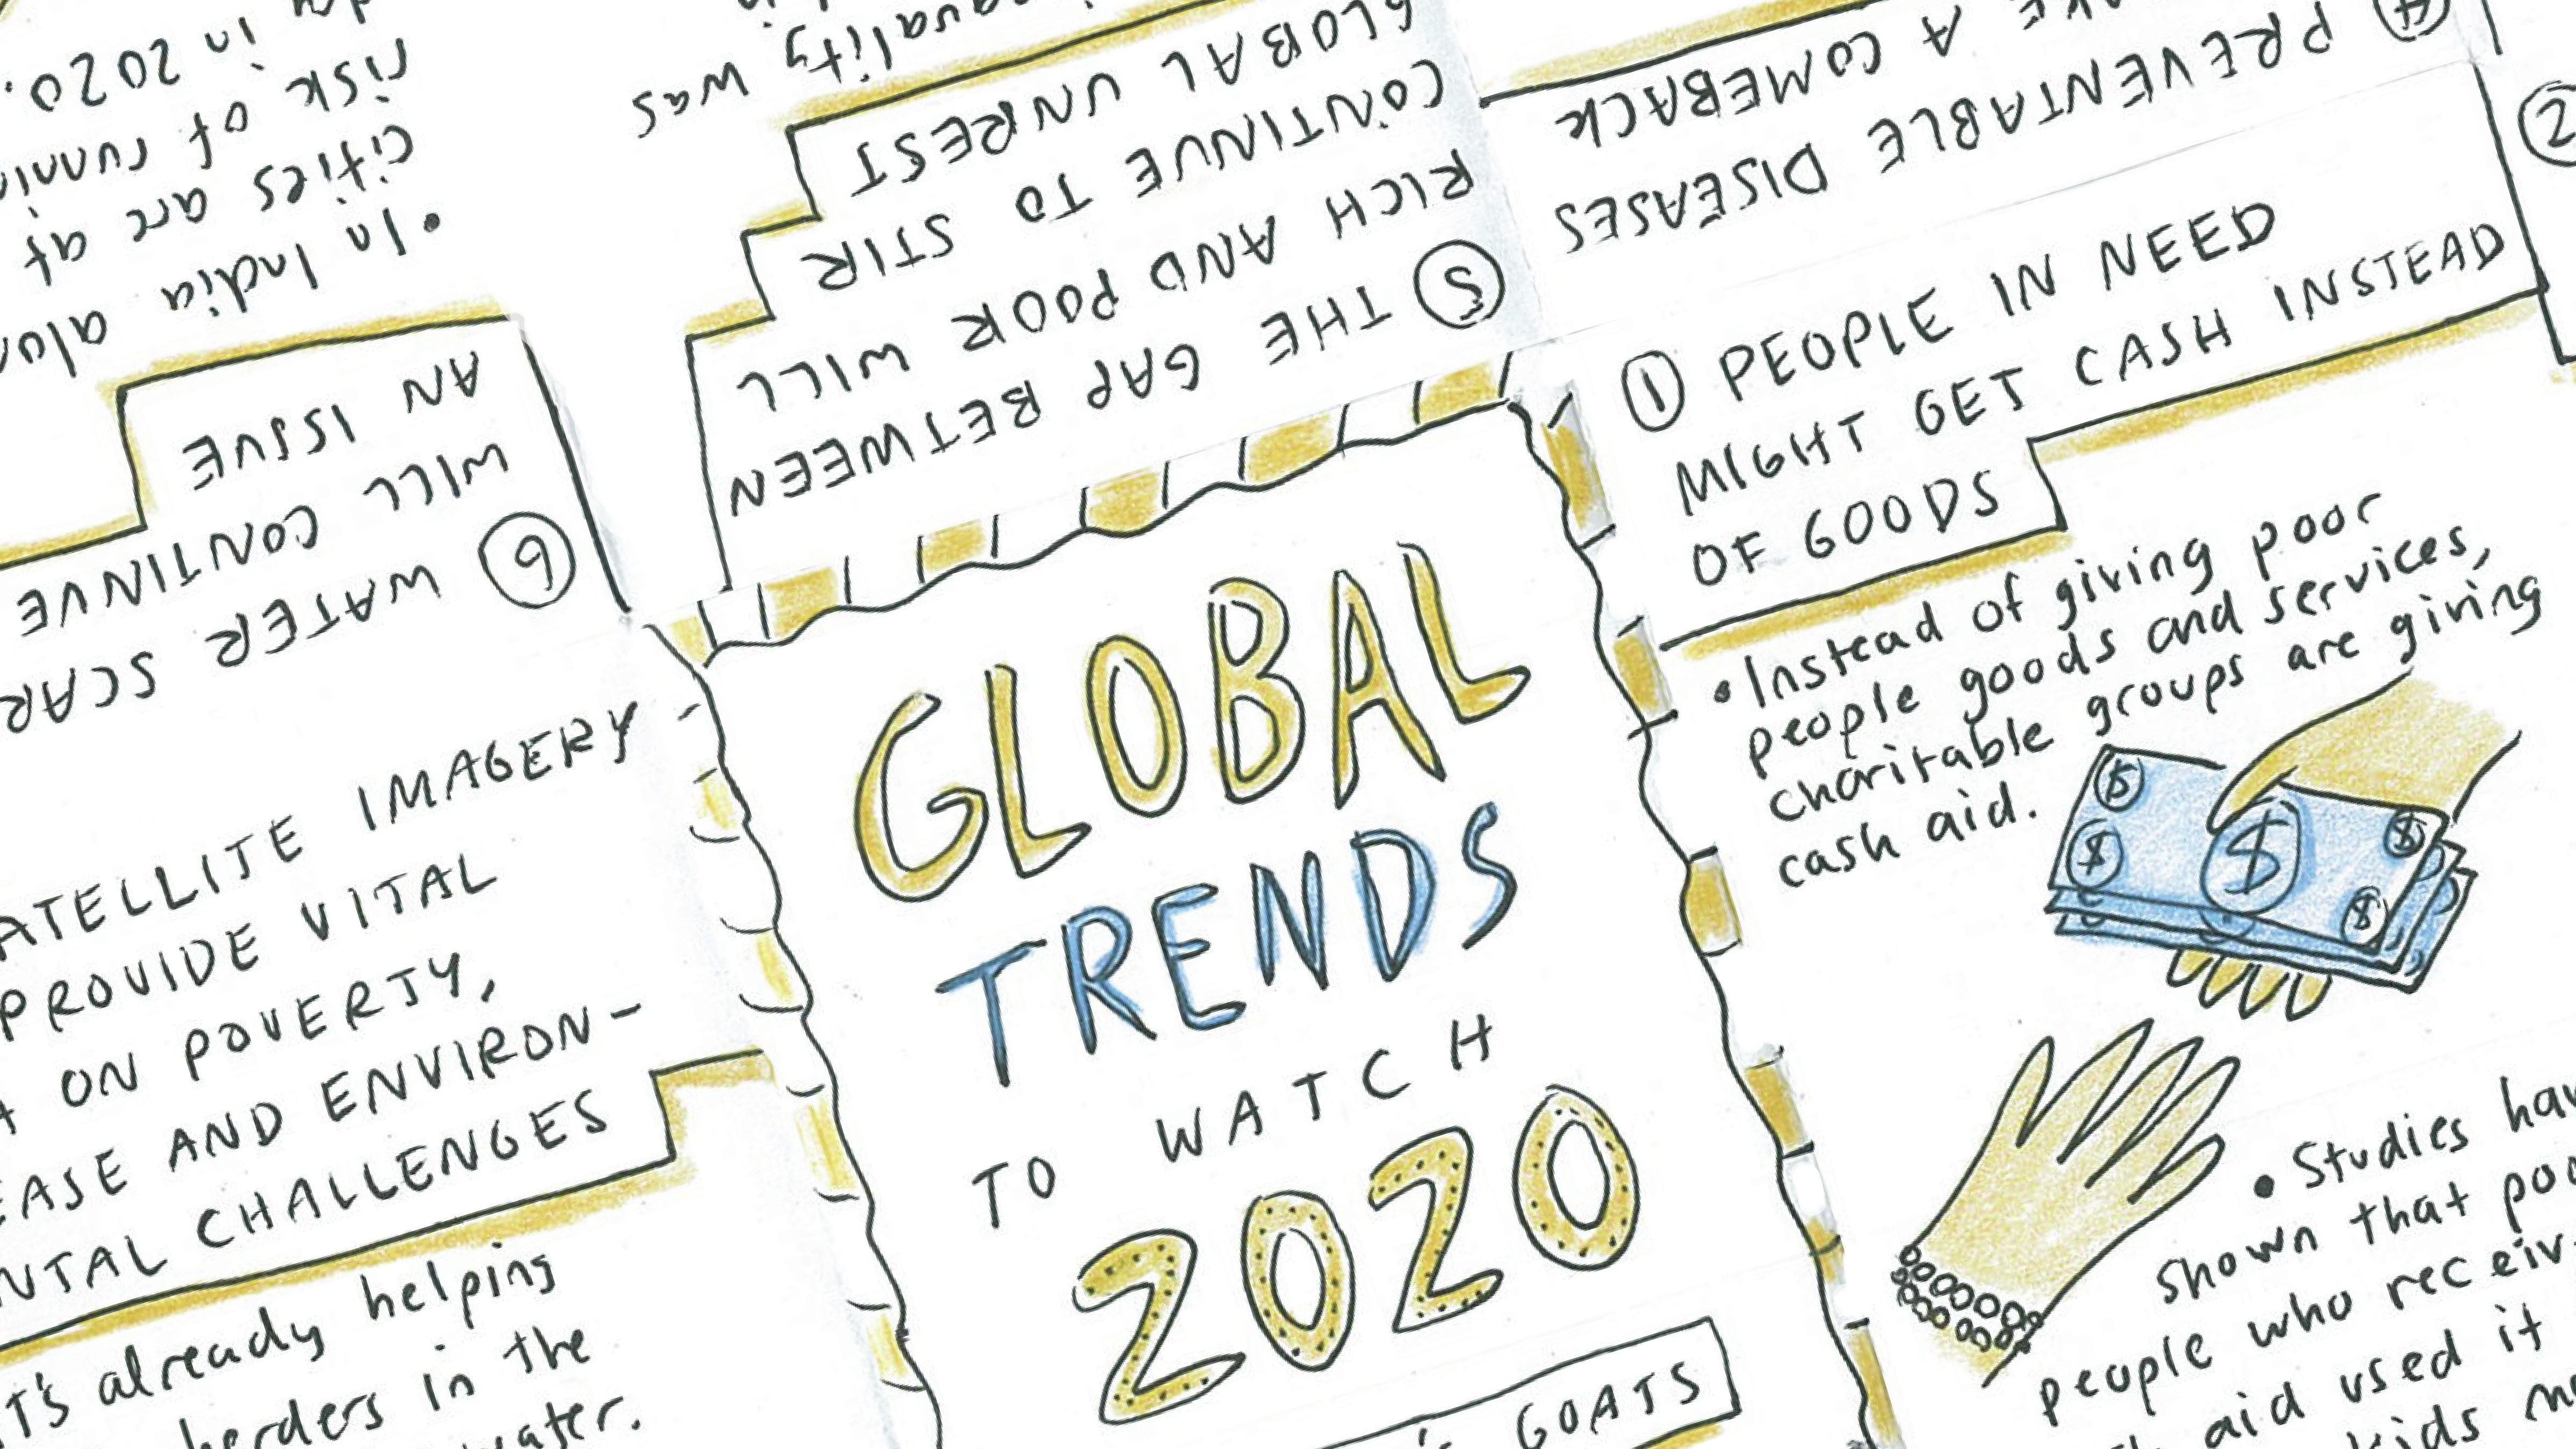 GLOBAL
TRENDS
TO WATCH
2020
GOATS
① PEOPLE IN NEED
MIGHT GET CASH INSTEAD
OF GOODS
• Instead of giving poor
people goods and services,
charitable groups are giving
cash aid.
$
$
$
$
$
• Studies
shown that
people who
aid used it
kids
②
④ PREVENTABLE DISEASES
A COMEBACK
⑤ THE GAP BETWEEN
RICH AND POOR WILL
CONTINUE TO STIR
GLOBAL UNREST
was
⑥ WATER
WILL CONTINUE
AN ISSUE
• In India
cities are at
risk of
in 2020.
IMAGERY
PROVIDE VITAL
ON POVERTY,
AND ENVIRON-
CHALLENGES
already helping
herders in the